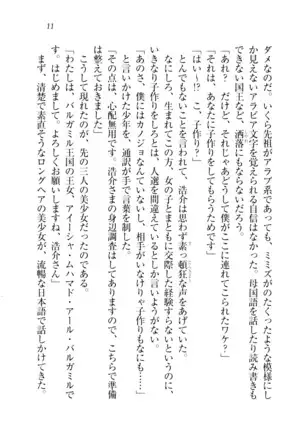 11
ダメなのだ。いくら先祖がアラブ系でも、ミミズがのたくったような模様にし
か見えないアラビア文字を覚えられる自信はなかった。母国語を話したり読み書きも
できない国王など、洒落にもならないだろう。
「あれ？　だけど、それじゃあどうして僕がここに連れてこられたワケ？」
「それは、あなたに子作りをしてもらうためです」
「はい～!?　こ、子作り!?」
とんでもないことを言われて、浩介は思わず素っ頓狂な声をあげていた。
なにしろ、生まれてこの方、女の子とまともに交際した経験すらないというのに、
いきなり子作りをしろとは、人選を間違えているとしか言いようがない。
「あの、僕にはカノジョなんていないし、相手がいなけりゃ子作りもなにも……」
と言いかけた少年を、通訳が手で言葉を制した。
「その点は、心配無用です。浩介さまの身辺調査はしてますので、こちらで準備
は整えておきました」
こうして現れたのが、先の三人の美少女だったのである。
「わたしは、バルガミル王国の王女、アイーシャ・ムハマド・アール・バルガミルで
す。よろしくお願いしますね、浩介さん」
まず、清楚で素直そうなロングヘアの美少女が、流暢な日本語で話しかけてきた。